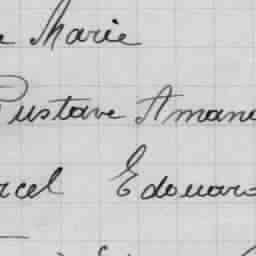 e Marie
Gustave Aman
rcel Edouard